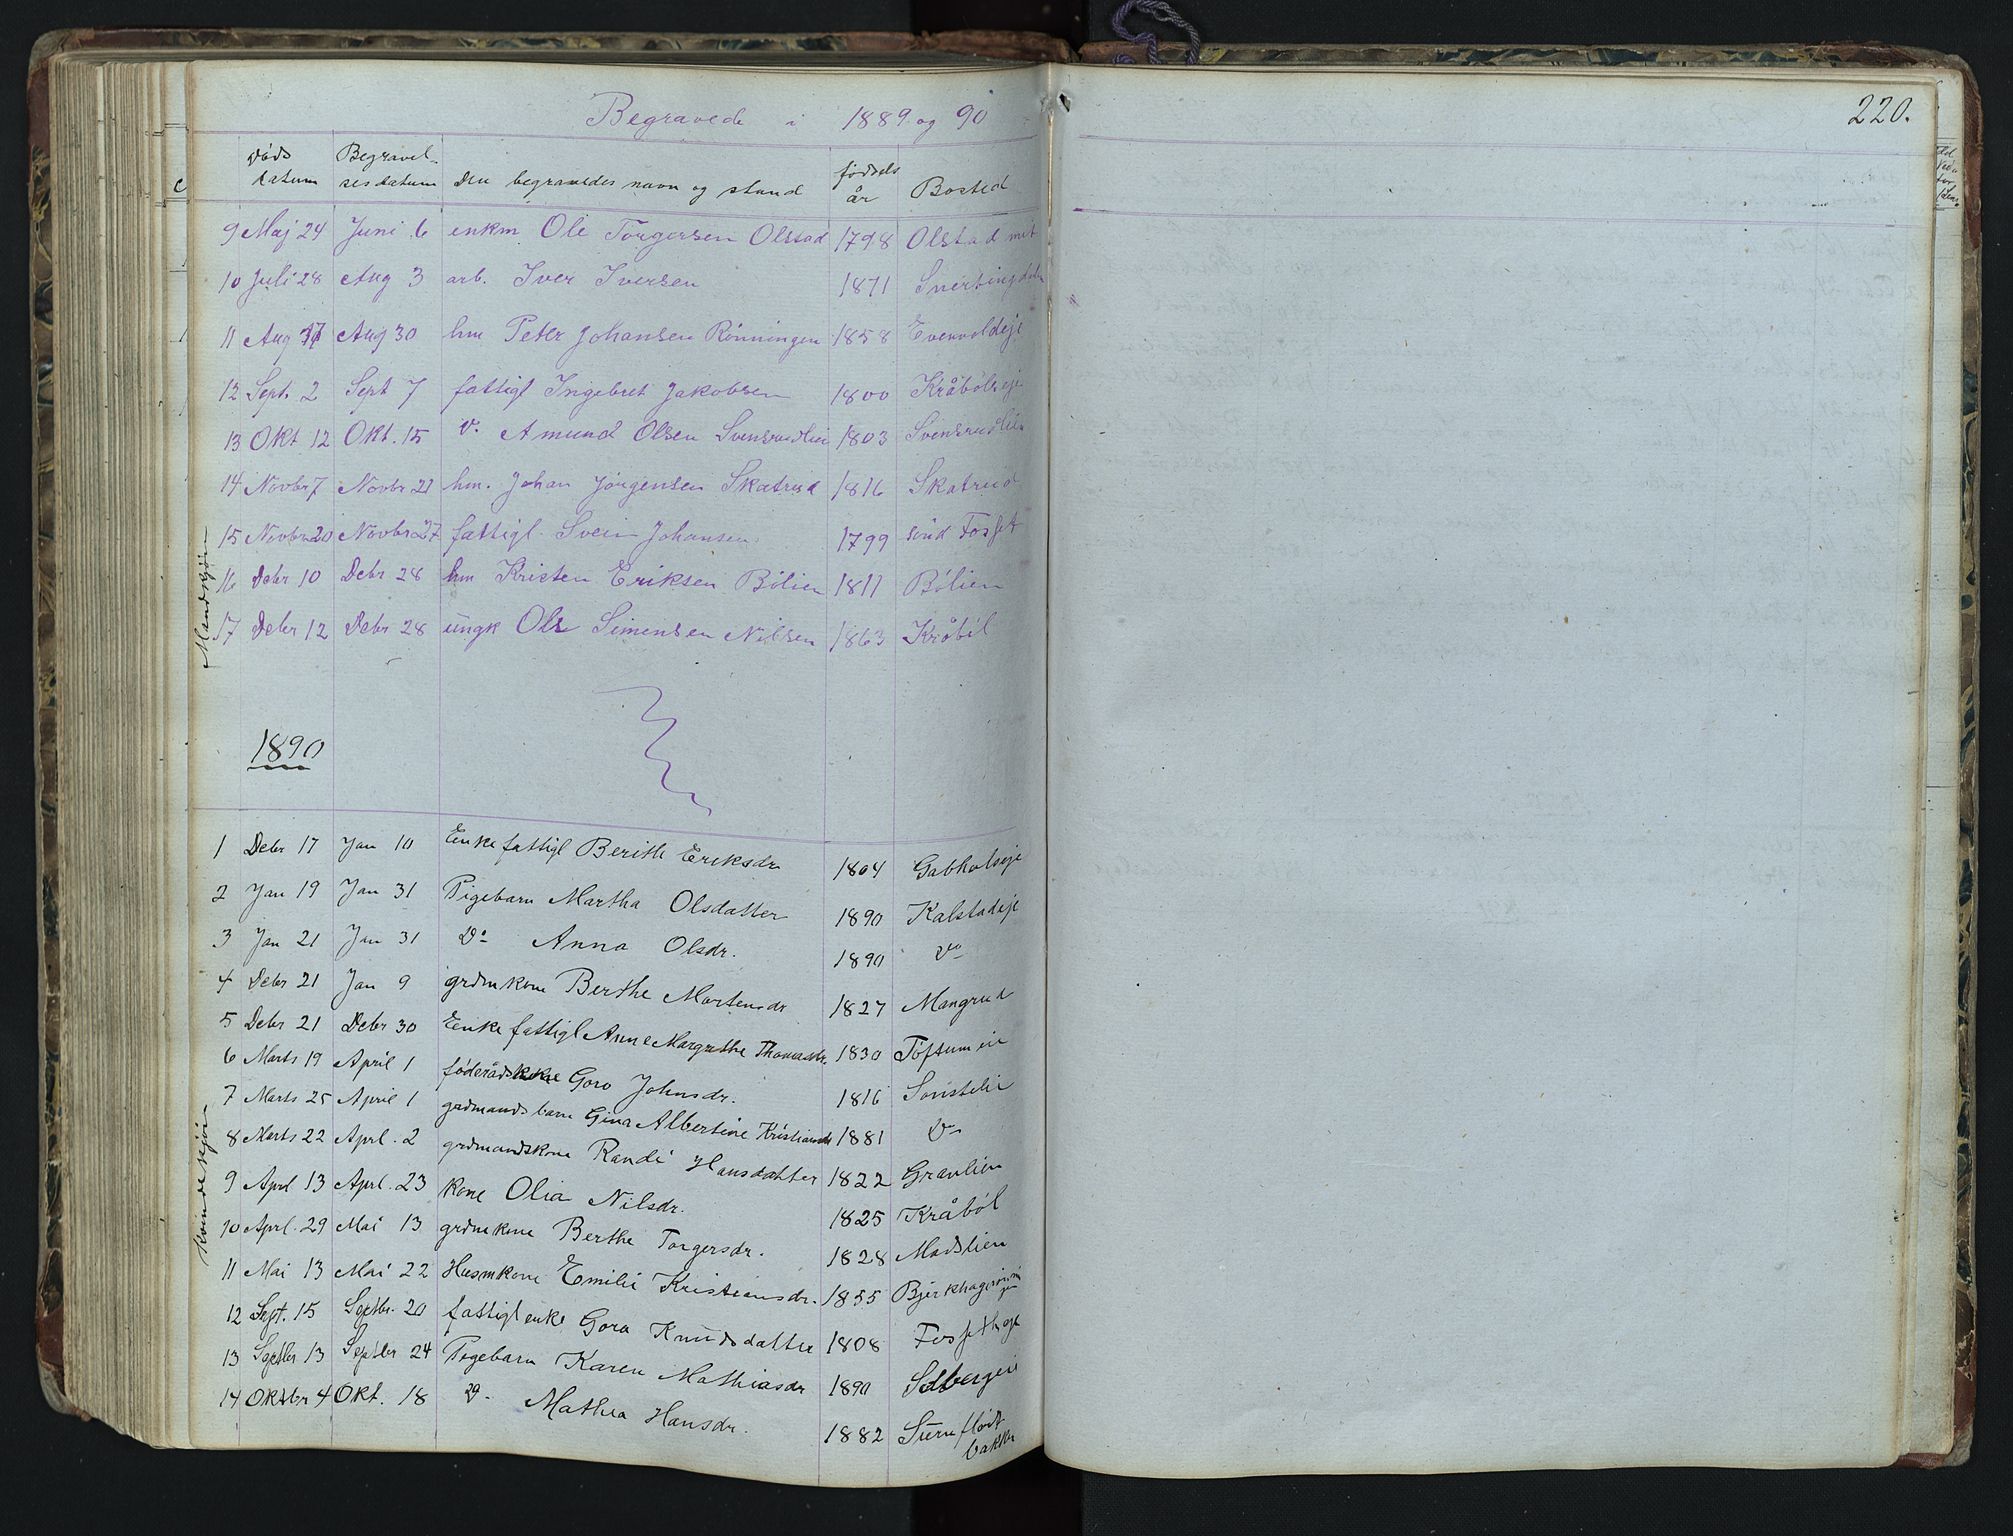 Begravede i 1889 og 90
220.
Døds datum Begravelsesdatum Den begravedes navn og stand fødsels år Bosted
Mandkjøn
9 Maj 24 Juni 6 enkm Ole Torgersen Olstad 1798 Olstad
10 Juli 28 Aug 3 arb. Iver Iversen 1871 Snertingdalen
11 Aug Aug 30 hm Peter Johansen Rönningen 1858 Evenvoldeje
12 Sept. 2 Sept 7 fattigl Ingebret Jakobsen 1800 Kråbölseje
13 Okt. 12 Okt. 15 Do Amund Olsen Svensrudlien 1803 Svensrudlien
14 Novbr 7 Novbr 21 hm. Johan Jörgensen Skatrud 1816 Skatrud
15 Novbr 20 Novbr 27 fattigl. Svein Johansen 1799 Fosset
16 Debr 10 Debr 28 hm Kristen Eriksen Bölien 1811 Bölien
17 Debr 12 Debr 28 ungk Ole Simensen Nilsen 1863 Kråböl
1890
Kvindekjøn
1 Debr 17 Jan 10 Enke fattigl Berithe Eriksdr 1804 Gabholseje
2 Jan 19 Jan 31 Pigebarn Martha Olsdatter 1890 Kalstadeje
3 Jan 21 Jan 31 Do Anna Olsdr. 1890 Do
4 Debr 21 Jan 9 grdmkone Berthe Mortensdr 1827 Mangrud
5 Debr 21 Debr 30 Enke fattigl Anne Margrethe Thomasdr. 1830 Töftumeie
6 Marts 19 April 1 föderådskone Goro Johnsdr. 1816
7 Marts 25 April 1 grdmandsbarn Gina Albertine Kristiansdr 1881 Do
8 Marts 22 Aprl. 2 grdmandskone Randi Hansdatter 1822 Gravlien
9 Aprl 13 Aprl. 23 kone Olia Nilsdr. 1825 Kråböl
10 Aprl. 29 Mai 13 grdmkone Berthe Torgersdr. 1828 Madslien
11 Mai 13 Mai 22 Husmkone Emilie Kristiansdr. 1855
12 Sept. 15 Septbr. 20 fattigl enke Gora Knudsdatter 1808
13 Septbr 13 Septbr 24 Pigebarn Karen Mathiasdr 1890 Solbergeie
14 Oktbr 4 Okt. 18 Do Mathea Hansdr. 1882 bakken